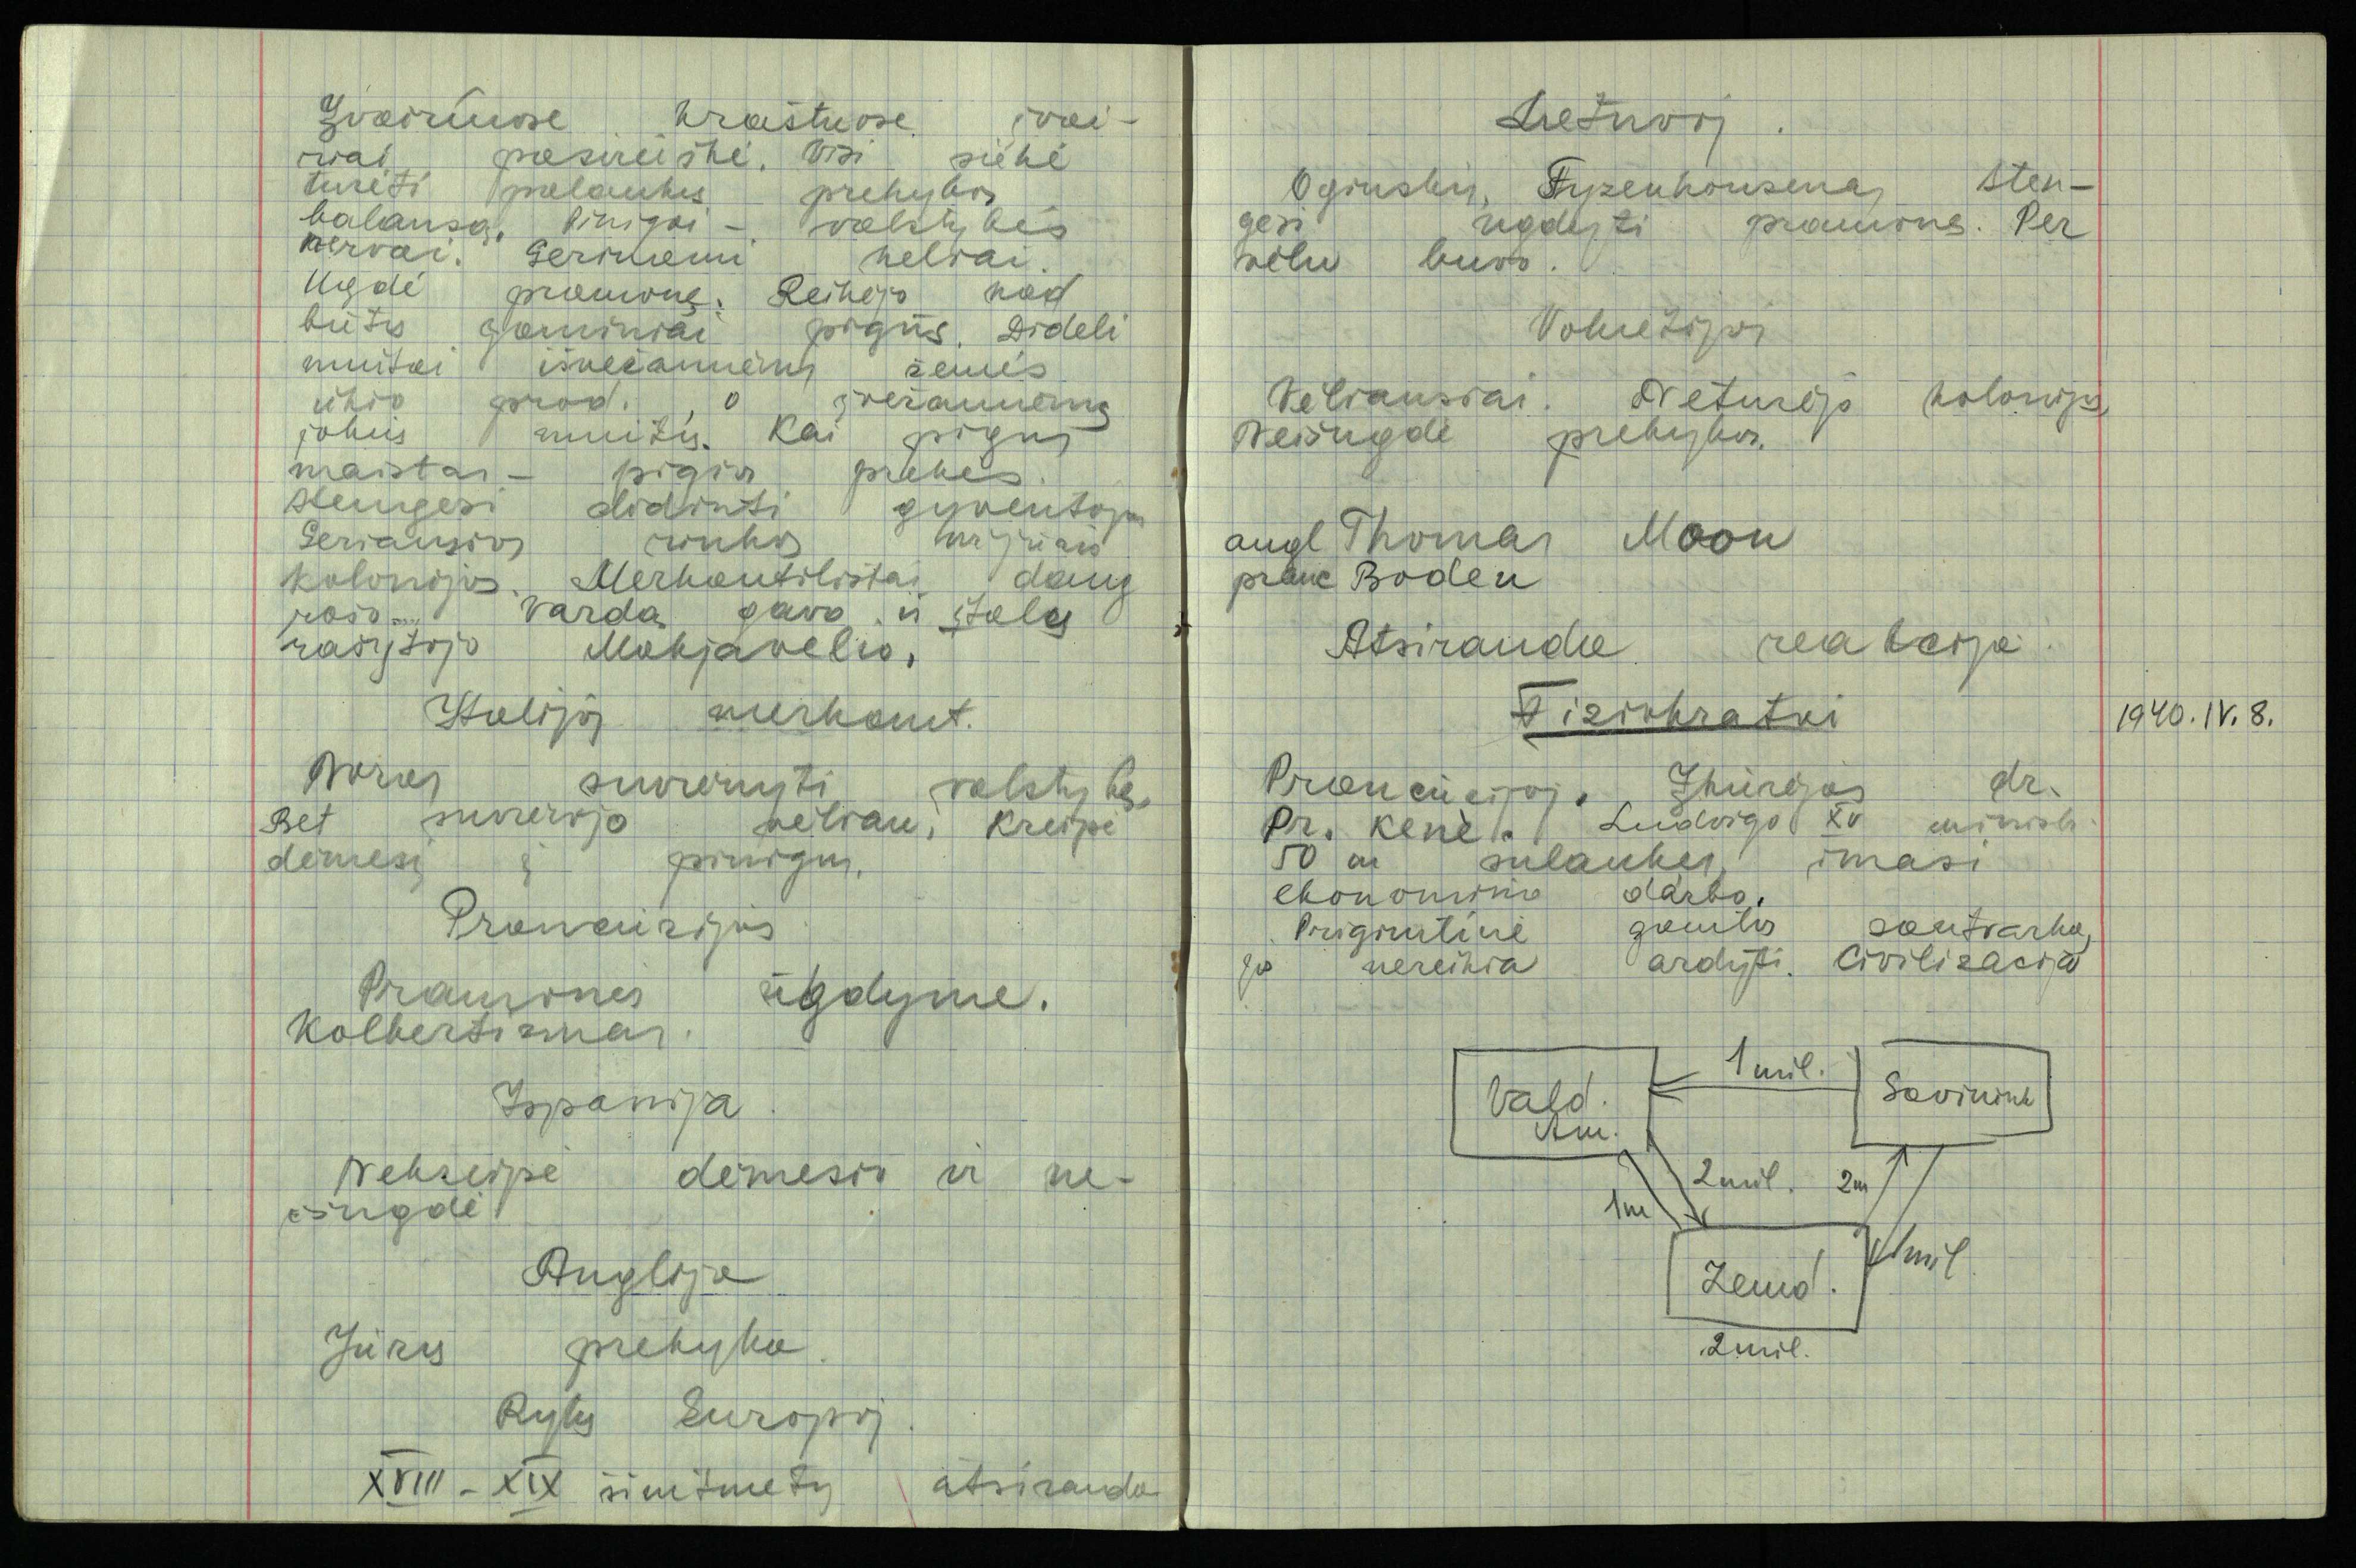 Įvairiuose kraštuose įvai-
riai pasireiškė. Visi siekė
turėti palankų prekybos
balansą. Pinigai - valstybės
nervai. Gerinami keliai.
Ugdė pramonę. Reikėjo kad
būtų gaminiai pigūs. Dideli
muitai išvežamiems žemės
ūkio prod., o įvežamiems
jokių muitų. Kai pigus
maistas - pigios prekės.
Stengėsi didinti gyventojų
Geriausios rinkos užjūrio
kolonijos. Merkantilistai daug
rašo.... Vardą gavo iš italų
rašytojo Makjavelio.
Italijoj merkant.
Noras suvienyti valstybę.
Bet suvienijo vėliau. Kreipė
dėmesį į pinigus.
Prancūzijos
Pramonės ūgdyme.
Kolbertizmas.
Ispanija.
Nekreipė dėmesio ir ne-
išugdė
Anglija
Jūrų prekyba.
Rytų Europoj.
XVIII - XIX šimtmety atsiranda
Lietuvoj.
Oginskis, Tyzenhauzenas sten-
gėsi ugdyti pramonę. Per
vėlu buvo.
Vokietijoj
Vėliausiai. Neturėjo kolonijų,
Neišugdė prekybos.
angl Thomas Moon
pranc Boden
Atsiranda reakcija.
Fiziokratai
1940.IV.8.
Prancūzijoj. Įkūrėjas dr.
Pr. Kenė. Ludvigo XV minist.
50 m sulaukęs, imasi
ekonominio darbo.
Prigimtinė gamtos santvarka,
jos nereikia ardyti. Civilizacija
1 mil.
Vald.
Am.
Savinink
2 mil.
2m
1m
1 mil.
Žemd.
2 mil.